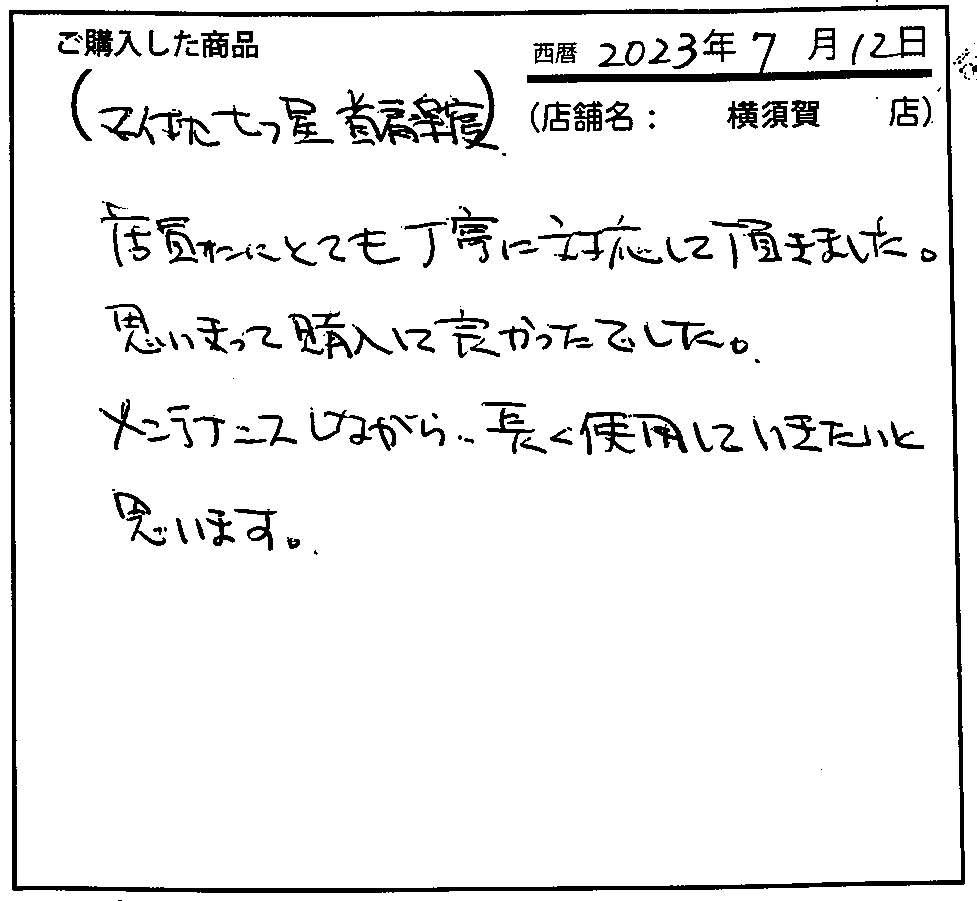 ご購入した商品
西暦 2023年 7月12日
(マイ枕 七つ星 首肩楽寝)
(店舗名: 横須賀 店)
店員さんにとても丁寧に対応して頂きました。
思いきって購入して良かったでした。
メンテナンスしながら、長く使用していきたいと
思います。